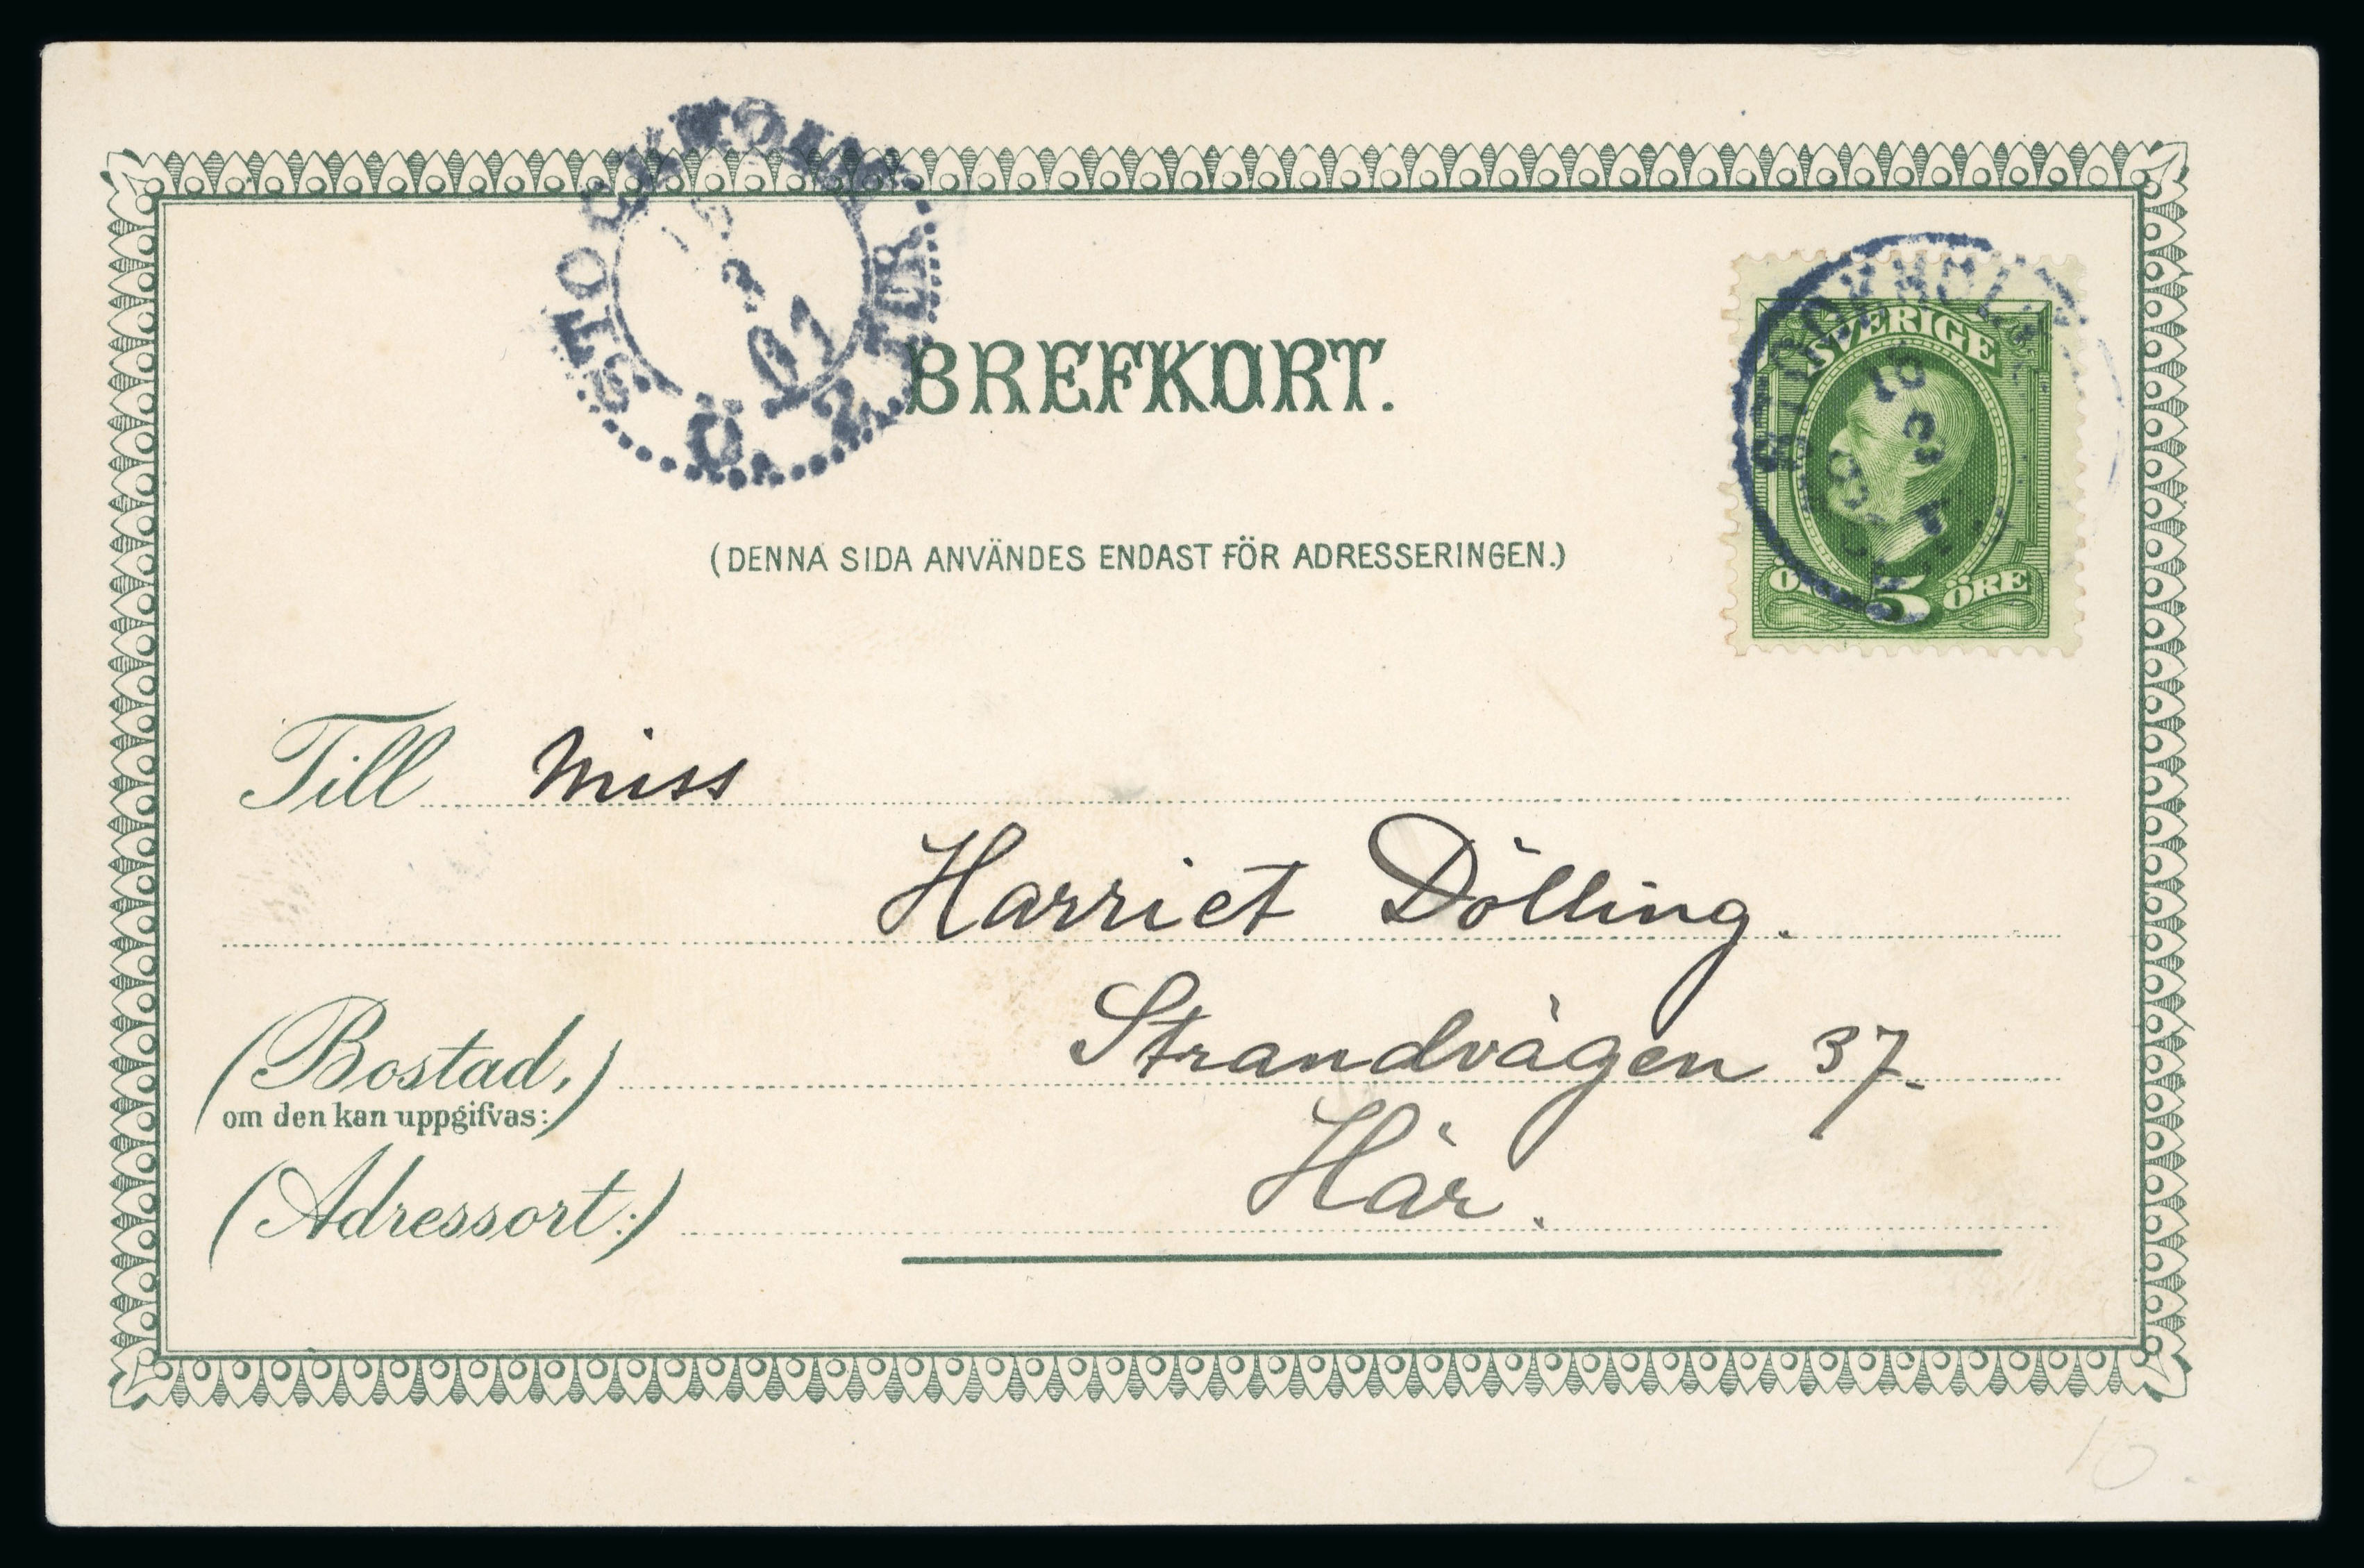 STOCKHOLM
3
01
Ö 2 TUR
BREFKORT.
SVERIGE
STOCKHOLM
3
(DENNA SIDA ANVÄNDES ENDAST FÖR ADRESSERINGEN.)
5 ÖRE
Till Miss
Harriet Dölling.
(Bostad,) Strandvägen 37.
om den kan uppgifvas:
(Adressort:) Här.
10